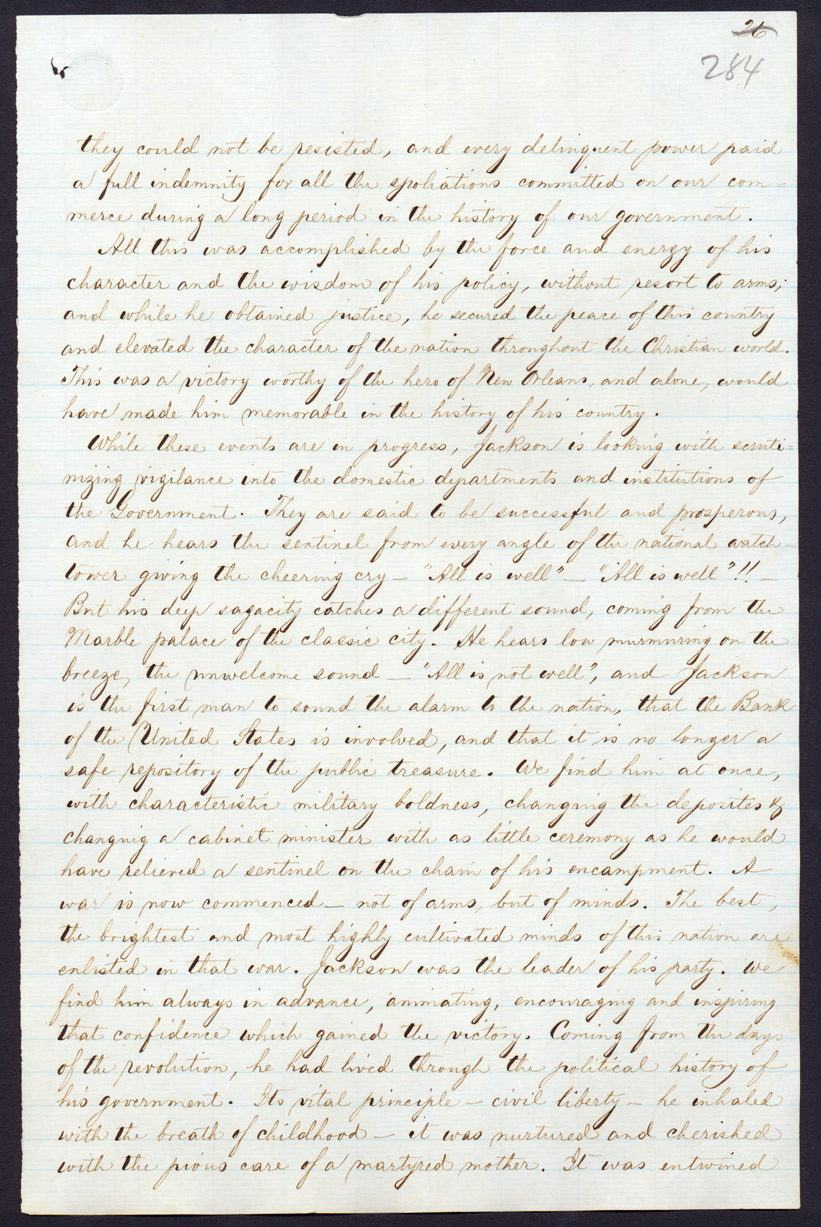 26
284
they could not be resisted, and every delinquent power paid
a full indemnity for all the spoliations committed on our com=
merce during a long period in the history of our government.
All this was accomplished by the force and energy of his
character and the wisdom of his policy, without resort to arms;
and while he obtained justice, he secured the peace of this country
and elevated the character of the nation throughout the Christian world.
This was a victory worthy of the hero of New Orleans, and alone, would
have made him memorable in the history of his country.
While these events are in progress, Jackson is looking with scruti=
nizing vigilance into the domestic departments and institutions of
the Government. They are said to be successful and prosperous,
and he hears the sentinel from every angle of the national watch-
tower giving the cheering cry — "All is well" — "All is well"!! —
But his deep sagacity catches a different sound, coming from the
Marble palace of the classic city. He hears low murmuring on the
breeze, the unwelcome sound — "All is not well", and Jackson
is the first man to sound the alarm to the nation, that the Bank
of the United States is involved, and that it is no longer a
safe repository of the public treasure. We find him at once,
with characteristic military boldness, changing the deposites &
changing a cabinet minister with as little ceremony as he would
have relieved a sentinel on the chain of his encampment. A
war is now commenced — not of arms, but of minds. The best,
the brightest and most highly cultivated minds of this nation are
enlisted in that war. Jackson was the leader of his party. We
find him always in advance, animating, encouraging and inspiring
that confidence which gained the victory. Coming from the days
of the revolution, he had lived through the political history of
his government. Its vital principle — civil liberty — he inhaled
with the breath of childhood — it was nurtured and cherished
with the pious care of a martyred mother. It was entwined